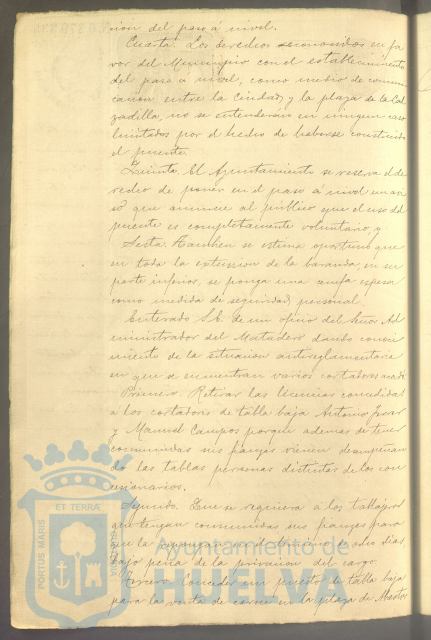 cion del paso á nivel.
Cuarta. Los derechos reconocidos en fa
vor del Municipio con el establecimiento
del paso á nivel, como medio de comuni
cacion entre la Ciudad y la plaza de la Cal
zadilla, no se entenderan en ningun caso
limitados por el hecho de haberse construido
el puente.
Quinta. El Ayuntamiento se reserva el de
recho de poner en el paso á nivel un avi
so que anuncie al público que el uso del
puente es completamente voluntario, y
Sexta. Tambien se estima oportuno que
en toda la extension de la baranda, en su
parte inferior, se ponga una espesa
como medida de seguridad personal.
Enterado S.E. de un oficio del Señor Ad
ministrador del Matadero dando conoci
miento de la situacion antireglamentaria
en que se encuentran varios cortadores
Primero. Retirar las licencias concedidas
a los cortadores de tabla baja Antonio
y Manuel Campos porque ademas de tener
consumidas sus fianzas vienen desempeñan
do las tablas personas distintas de los con
cesionarios.
Segundo. Que se requiera a los tablajeros
que tengan consumidas sus fianzas para
que la repongan en el término de ocho dias
bajo pena de la privacion del cargo.
Tercero. Conceder un puesto de tabla baja
para la venta de carne en la plaza de Abastos
PORTUS MARIS ET TERRAE
Ayuntamiento de
HUELVA